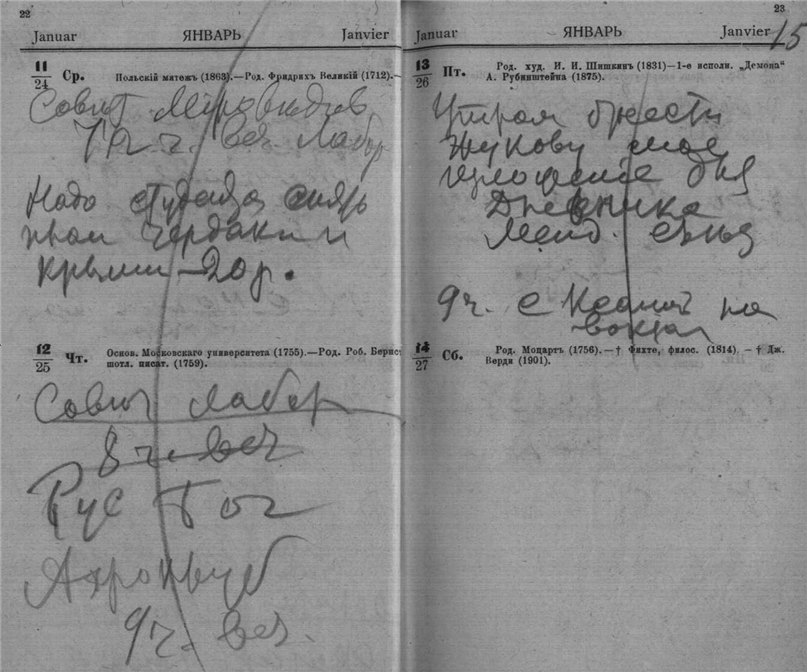 22
Januar ЯНВАРЬ Janvier
11/24 Ср. Польскій мятежъ (1863).—Род. Фридрихъ Великій (1712).—
Совет Мироведов
7 1/2 ч. веч Лабор
Надо студента снять
крыши —20 р.
12/25 Чт. Основ. Московскаго университета (1755).—Род. Роб. Бернс
шотл. писат. (1759).
Совет Лабор
8 ч. веч
Рус Бог
Астроклуб
9 ч. веч.
23
Januar ЯНВАРЬ Janvier 15
13/26 Пт. Род. худ. И. И. Шишкинъ (1831)—1-е исполн. „Демона“
А. Рубинштейна (1875).
Утром
Жукову мое
изложение для
Дневника
Менд. съезда
9 ч. с Ксенией на
вокзал
14/27 Сб. Род. Моцартъ (1756).—† Фихте, филос. (1814) —† Дж.
Верди (1901).